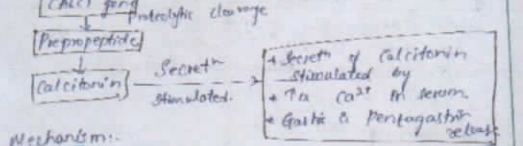 CALCI gene
Proteolytic cleavage
Prepropeptide
Calcitonin
Secretn
stimulated.
+ Secretn of Calcitonin
stimulated by
+ Ca²⁺ in serum.
+ Gastric & Pentagastrin
release
Mechanism:-